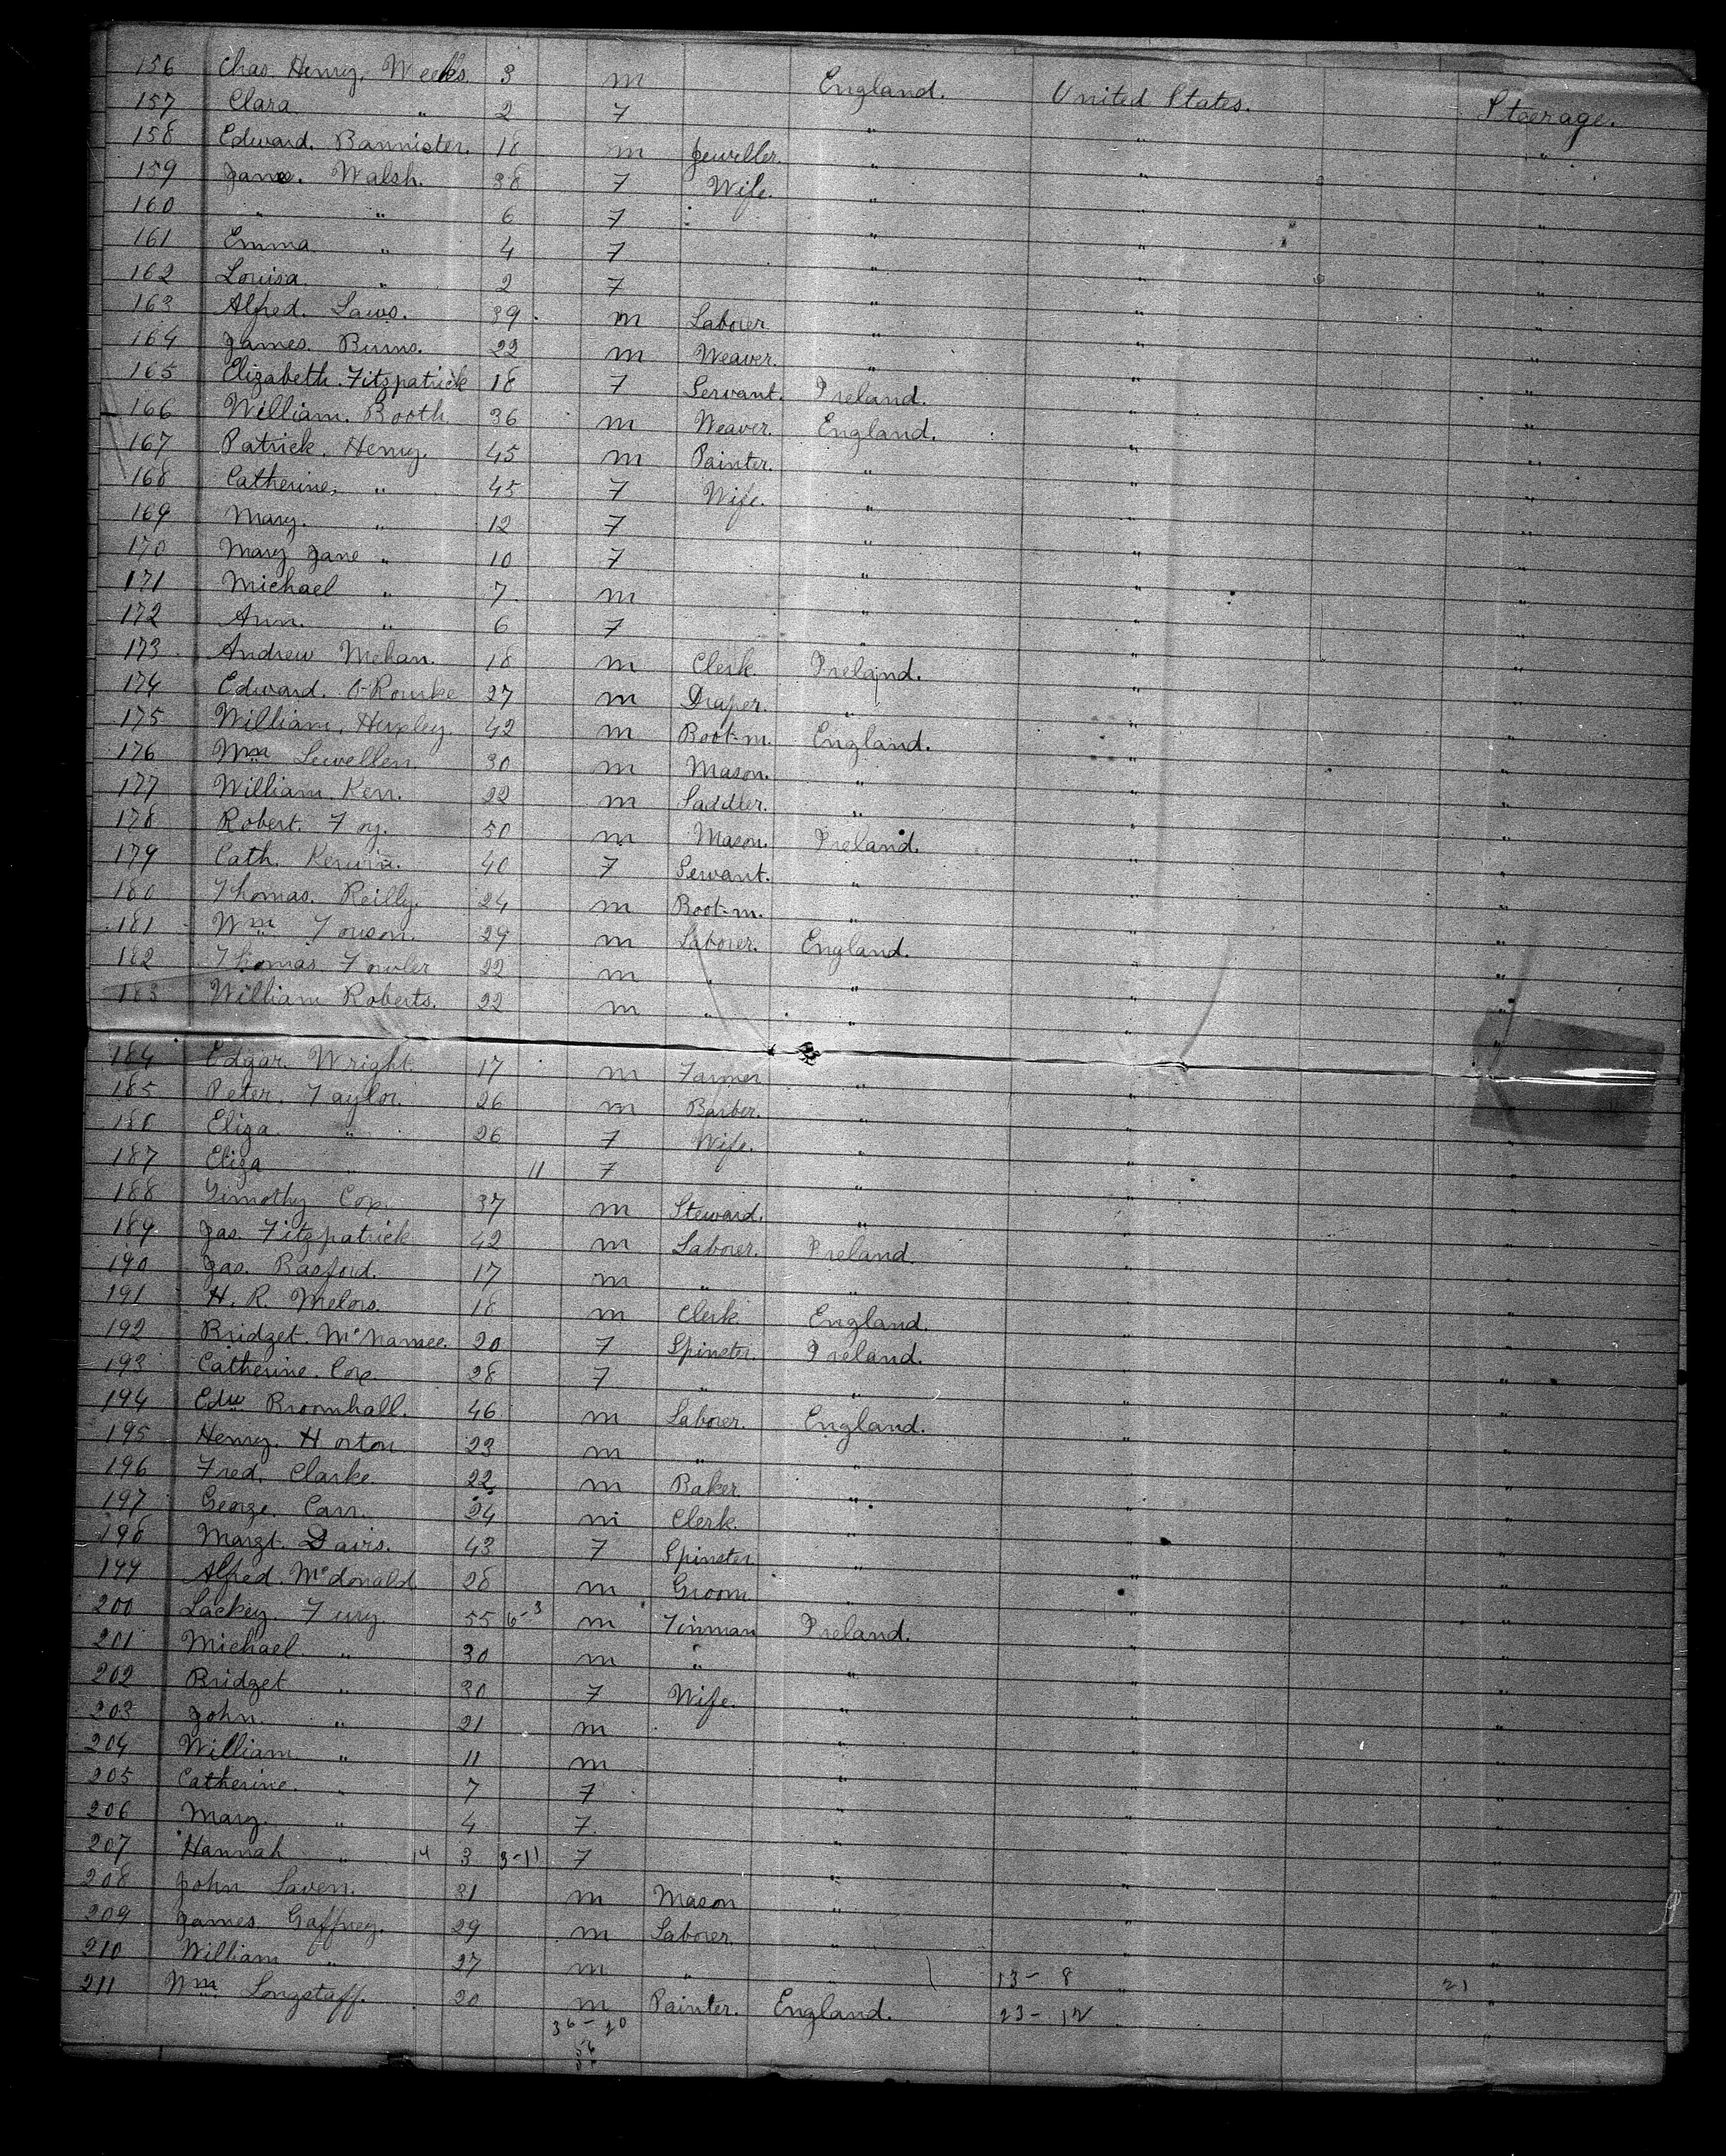 156 Chas Henry. Weeks. 3 m England. United States. Steerage.
157 Clara. " 2 7 " " "
158 Edward. Bannister. 18 m Jeweller. " " "
159 Jane. Walsh. 38 7 Wife. " " "
160 " " 6 7 " " "
161 Emma " 4 7 " " "
162 Louisa. " 2 7 " " "
163 Alfred. Laws. 39 m Laborer " " "
164 James. Burns. 22 m Weaver. " " "
165 Elizabeth. Fitzpatrick 18 7 Servant. Ireland. " "
166 William. Booth. 36 m Weaver. England. " "
167 Patrick. Henry. 45 m Painter. " " "
168 Catherine. " 45 7 Wife. " " "
169 Mary. " 12 7 " " "
170 Mary Jane " 10 7 " " "
171 Michael " 7 m " " "
172 Ann. " 6 7 " " "
173 Andrew Mehan. 18 m Clerk. Ireland. " "
174 Edward. O'Rourke 27 m Draper. " " "
175 William. 42 m Boot-m. England. " "
176 Wm Lewellen. 30 m Mason. " " "
177 William. Kerr. 22 m Saddler. " " "
178 Robert. Foy. 50 m Mason. Ireland. " "
179 Cath. Kerwin. 40 7 Servant. " " "
180 Thomas. Reilly. 24 m Boot-m. " " "
181 Wm 29 m Laborer. England. " "
182 Thomas. Fowler 22 m " " " "
183 William Roberts. 22 m " " " "
184 Edgar. Wright. 17 m Farmer " " "
185 Peter. Taylor. 26 m Barber. " " "
186 Eliza. " 26 7 Wife. " " "
187 Eliza " 11 7 " " "
188 Timothy Cox. 37 m Steward. " " "
189 Jas. Fitzpatrick 42 m Laborer. Ireland. " "
190 Jas. Basford. 17 m " " " "
191 H. R. Melors. 18 m Clerk. England. " "
192 Bridget. McNamee. 20 7 Spinster. Ireland. " "
193 Catherine. Cox 28 7 " " " "
194 Edw Broomhall. 46 m Laborer. England. " "
195 Henry. Horton 23 m " " " "
196 Fred. Clarke 22 m Baker " " "
197 George. Carr. 24 m Clerk. " " "
198 Margt. Davis. 43 7 Spinster " " "
199 Alfred. McDonald 28 m Groom " " "
200 Lackey. Fury. 55 6-3 m Tinman Ireland. " "
201 Michael. " 30 m " " " "
202 Bridget " 30 7 Wife. " " "
203 John. " 21 m " " "
204 William " 11 m " " "
205 Catherine. " 7 7 " " "
206 Mary. " 4 7 " " "
207 Hannah " 14 3 3-11 7 " " "
208 John Laven. 31 m Mason " " "
209 James. Gaffney. 29 m Laborer. " " "
210 William " 27 m " " 13-8 " 21 "
211 Wm. Longstaff. 20 m Painter. England. 23-12 "
36-20
56